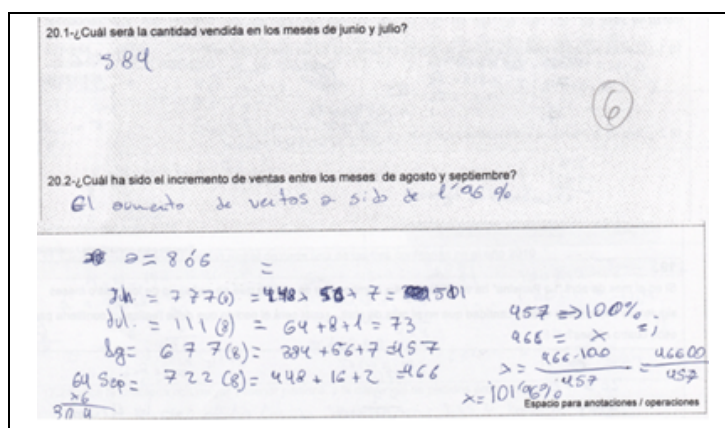 20.1-¿Cuál será la cantidad vendida en los meses de junio y julio?
584
6
20.2-¿Cuál ha sido el incremento de ventas entre los meses de agosto y septiembre?
El aumento de ventas a sido de 1'96 %
a = 8 ó 6 =
Jun. = 777(8) = 448 + 56 + 7 = 501
Jul. = 111(8) = 64 + 8 + 1 = 73
Ag = 677(8) = 384 + 56 + 7 = 457
Sep = 722(8) = 448 + 16 + 2 = 466
64
x6
457 => 100%
466 = x
x = 466·100 / 457 = 46600 / 457
x = 101'96%
Espacio para anotaciones / operaciones